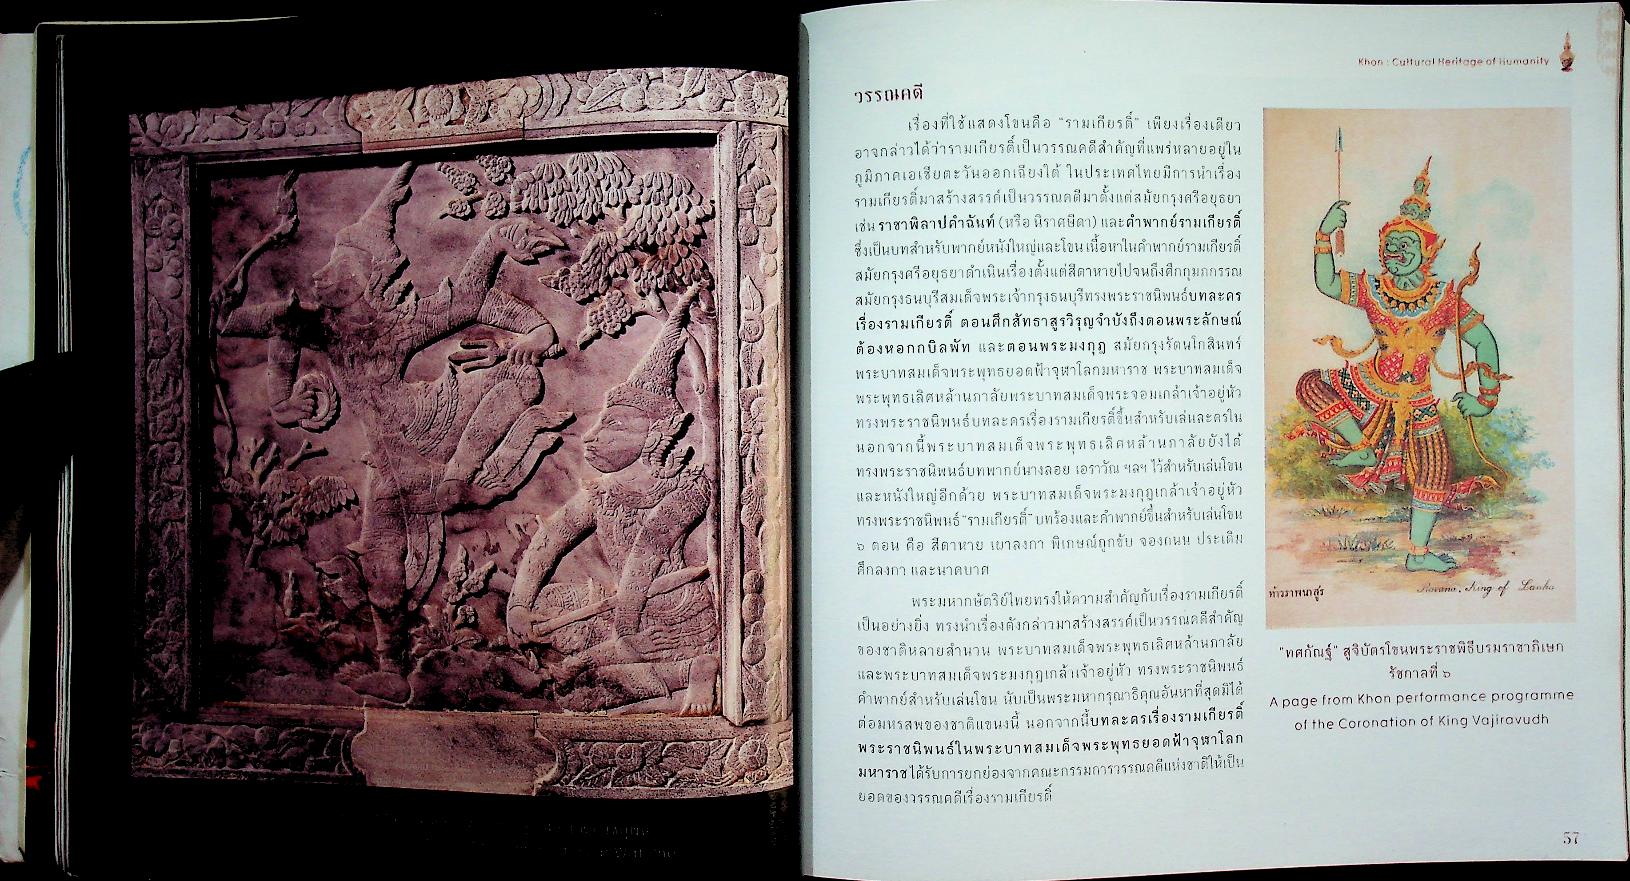 Khon : Cultural Heritage of Humanity
วรรณคดี
เรื่องที่ใช้แสดงโขนคือ "รามเกียรติ์" เพียงเรื่องเดียว
อาจกล่าวได้ว่ารามเกียรติ์เป็นวรรณคดีสำคัญที่แพร่หลายอยู่ใน
ภูมิภาคเอเชียตะวันออกเฉียงใต้ ในประเทศไทยมีการนำเรื่อง
รามเกียรติ์มาสร้างสรรค์เป็นวรรณคดีมาตั้งแต่สมัยกรุงศรีอยุธยา
เช่น ราชาพิลาปคำฉันท์ (หรือ นิราศษีดา) และคำพากย์รามเกียรติ์
ซึ่งเป็นบทสำหรับพากย์หนังใหญ่และโขน เนื้อหาในคำพากย์รามเกียรติ์
สมัยกรุงศรีอยุธยาดำเนินเรื่องตั้งแต่สีดาหายไปจนถึงศึกกุมภกรรณ
สมัยกรุงธนบุรีสมเด็จพระเจ้ากรุงธนบุรีทรงพระราชนิพนธ์บทละคร
เรื่องรามเกียรติ์ ตอนศึกสัทธาสูรวิรุญจำบังถึงตอนพระลักษณ์
ต้องหอกกบิลพัท และตอนพระมงกุฎ สมัยกรุงรัตนโกสินทร์
พระบาทสมเด็จพระพุทธยอดฟ้าจุฬาโลกมหาราช พระบาทสมเด็จ
พระพุทธเลิศหล้านภาลัยพระบาทสมเด็จพระจอมเกล้าเจ้าอยู่หัว
ทรงพระราชนิพนธ์บทละครเรื่องรามเกียรติ์ขึ้นสำหรับเล่นละครใน
นอกจากนี้พระบาทสมเด็จพระพุทธเลิศหล้านภาลัยยังได้
ทรงพระราชนิพนธ์บทพากย์นางลอย เอราวัณ ฯลฯ ไว้สำหรับเล่นโขน
และหนังใหญ่อีกด้วย พระบาทสมเด็จพระมงกุฎเกล้าเจ้าอยู่หัว
ทรงพระราชนิพนธ์ "รามเกียรติ์" บทร้องและคำพากย์ขึ้นสำหรับเล่นโขน
๖ ตอน คือ สีดาหาย เผาลงกา พิเภษณ์ถูกขับ จองถนน ประเดิม
ศึกลงกา และนาคบาศ
พระมหากษัตริย์ไทยทรงให้ความสำคัญกับเรื่องรามเกียรติ์
เป็นอย่างยิ่ง ทรงนำเรื่องดังกล่าวมาสร้างสรรค์เป็นวรรณคดีสำคัญ
ของชาติหลายสำนวน พระบาทสมเด็จพระพุทธเลิศหล้านภาลัย
และพระบาทสมเด็จพระมงกุฎเกล้าเจ้าอยู่หัว ทรงพระราชนิพนธ์
คำพากย์สำหรับเล่นโขน นับเป็นพระมหากรุณาธิคุณอันหาที่สุดมิได้
ต่อมหรสพของชาติแขนงนี้ นอกจากนี้บทละครเรื่องรามเกียรติ์
พระราชนิพนธ์ในพระบาทสมเด็จพระพุทธยอดฟ้าจุฬาโลก
มหาราชได้รับการยกย่องจากคณะกรรมการวรรณคดีแห่งชาติให้เป็น
ยอดของวรรณคดีเรื่องรามเกียรติ์
ท้าวราพนาสูร
Ravana, King of Lanka
"ทศกัณฐ์" สูจิบัตรโขนพระราชพิธีบรมราชาภิเษก
รัชกาลที่ ๖
A page from Khon performance programme
of the Coronation of King Vajiravudh
57